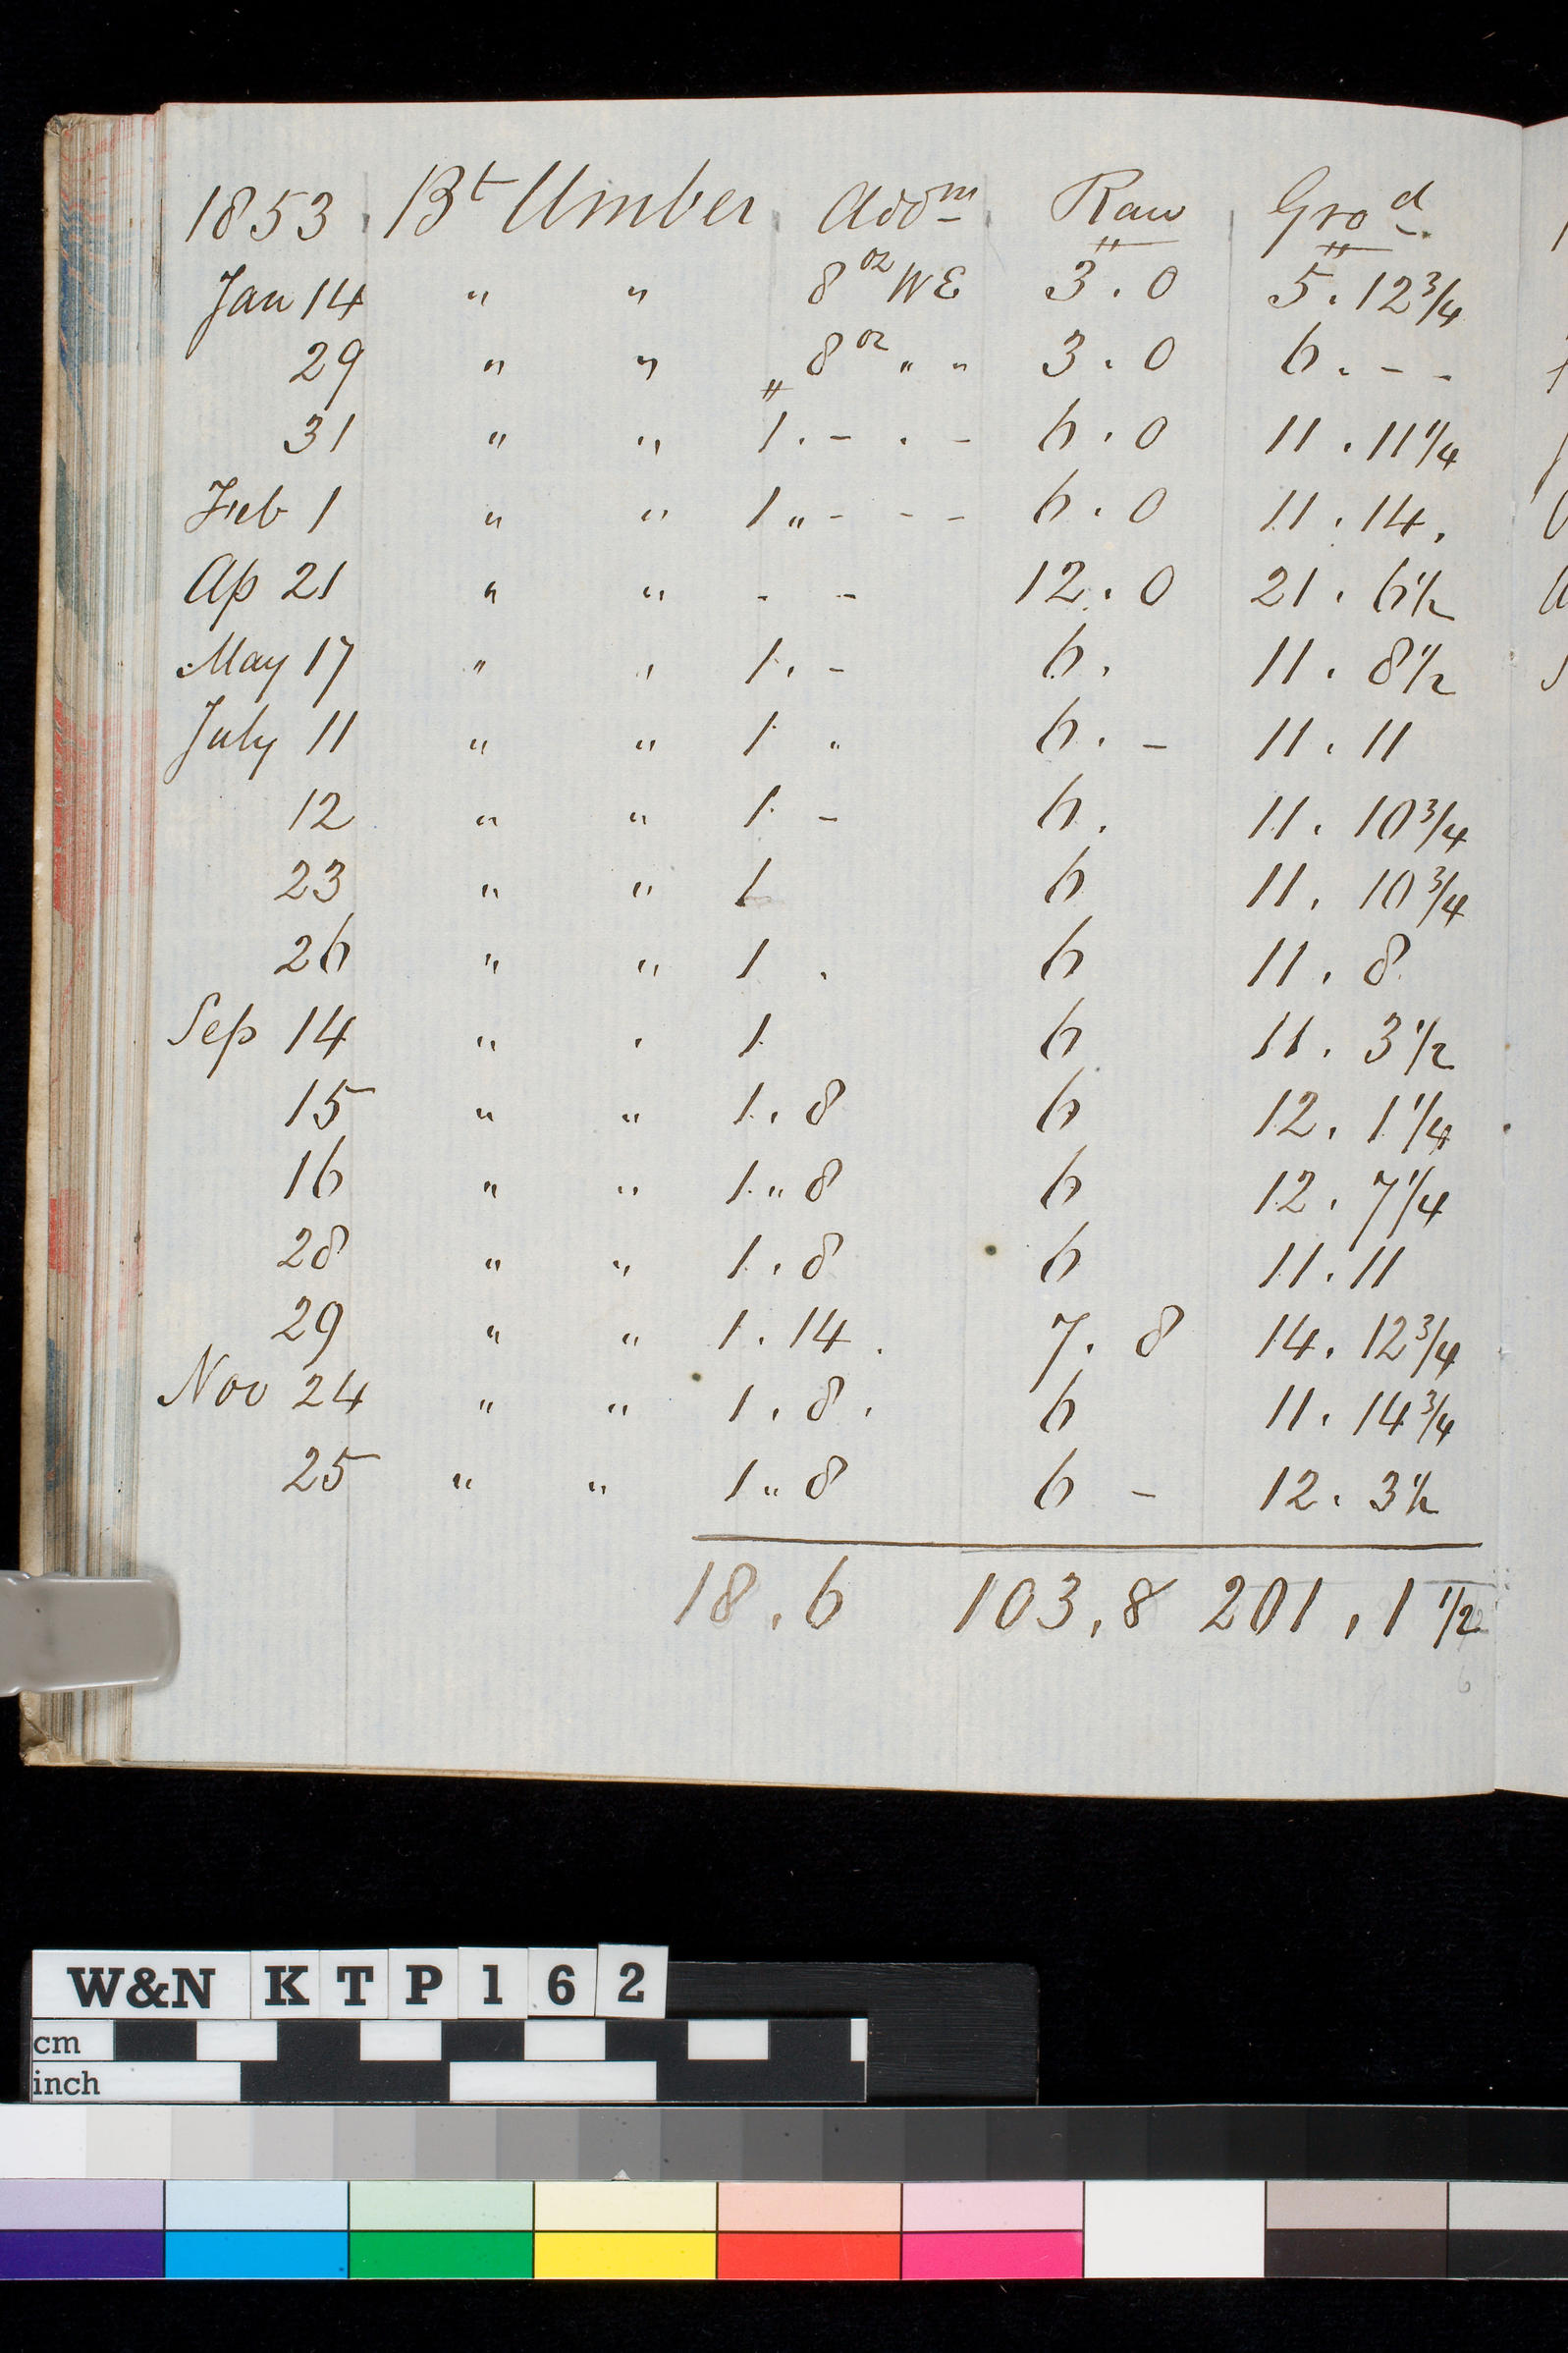 1853 Bt Umber Addm Raw Grod
Jan 14 " " 8 oz WE 3 . 0 5 . 12 3/4
29 " " 8 oz " " 3 . 0 6 . - -
31 " " 1 . - . - 6 . 0 11 . 11 1/4
Feb 1 " " 1 " - - - 6 . 0 11 . 14 .
Ap 21 " " - - 12 . 0 21 . 6 1/2
May 17 " " 1 . - 6 . 11 . 8 1/2
July 11 " " 1 " 6 . - 11 . 11
12 " " 1 - 6 . 11 . 10 3/4
23 " " 1 6 11 . 10 3/4
26 " " 1 . 6 11 . 8
Sep 14 " " 1 6 11 . 3 1/2
15 " " 1 . 8 6 12 . 1 1/4
16 " " 1 " 8 6 12 . 7 1/4
28 " " 1 . 8 6 11 . 11
29 " " 1 . 14 . 7 . 8 14 . 12 3/4
Nov 24 " " 1 . 8 . 6 11 . 14 3/4
25 " " 1 " 8 6 - 12 . 3 1/2
18 . 6 103 . 8 201 . 1 1/2
6
W&N KTP162
cm
inch